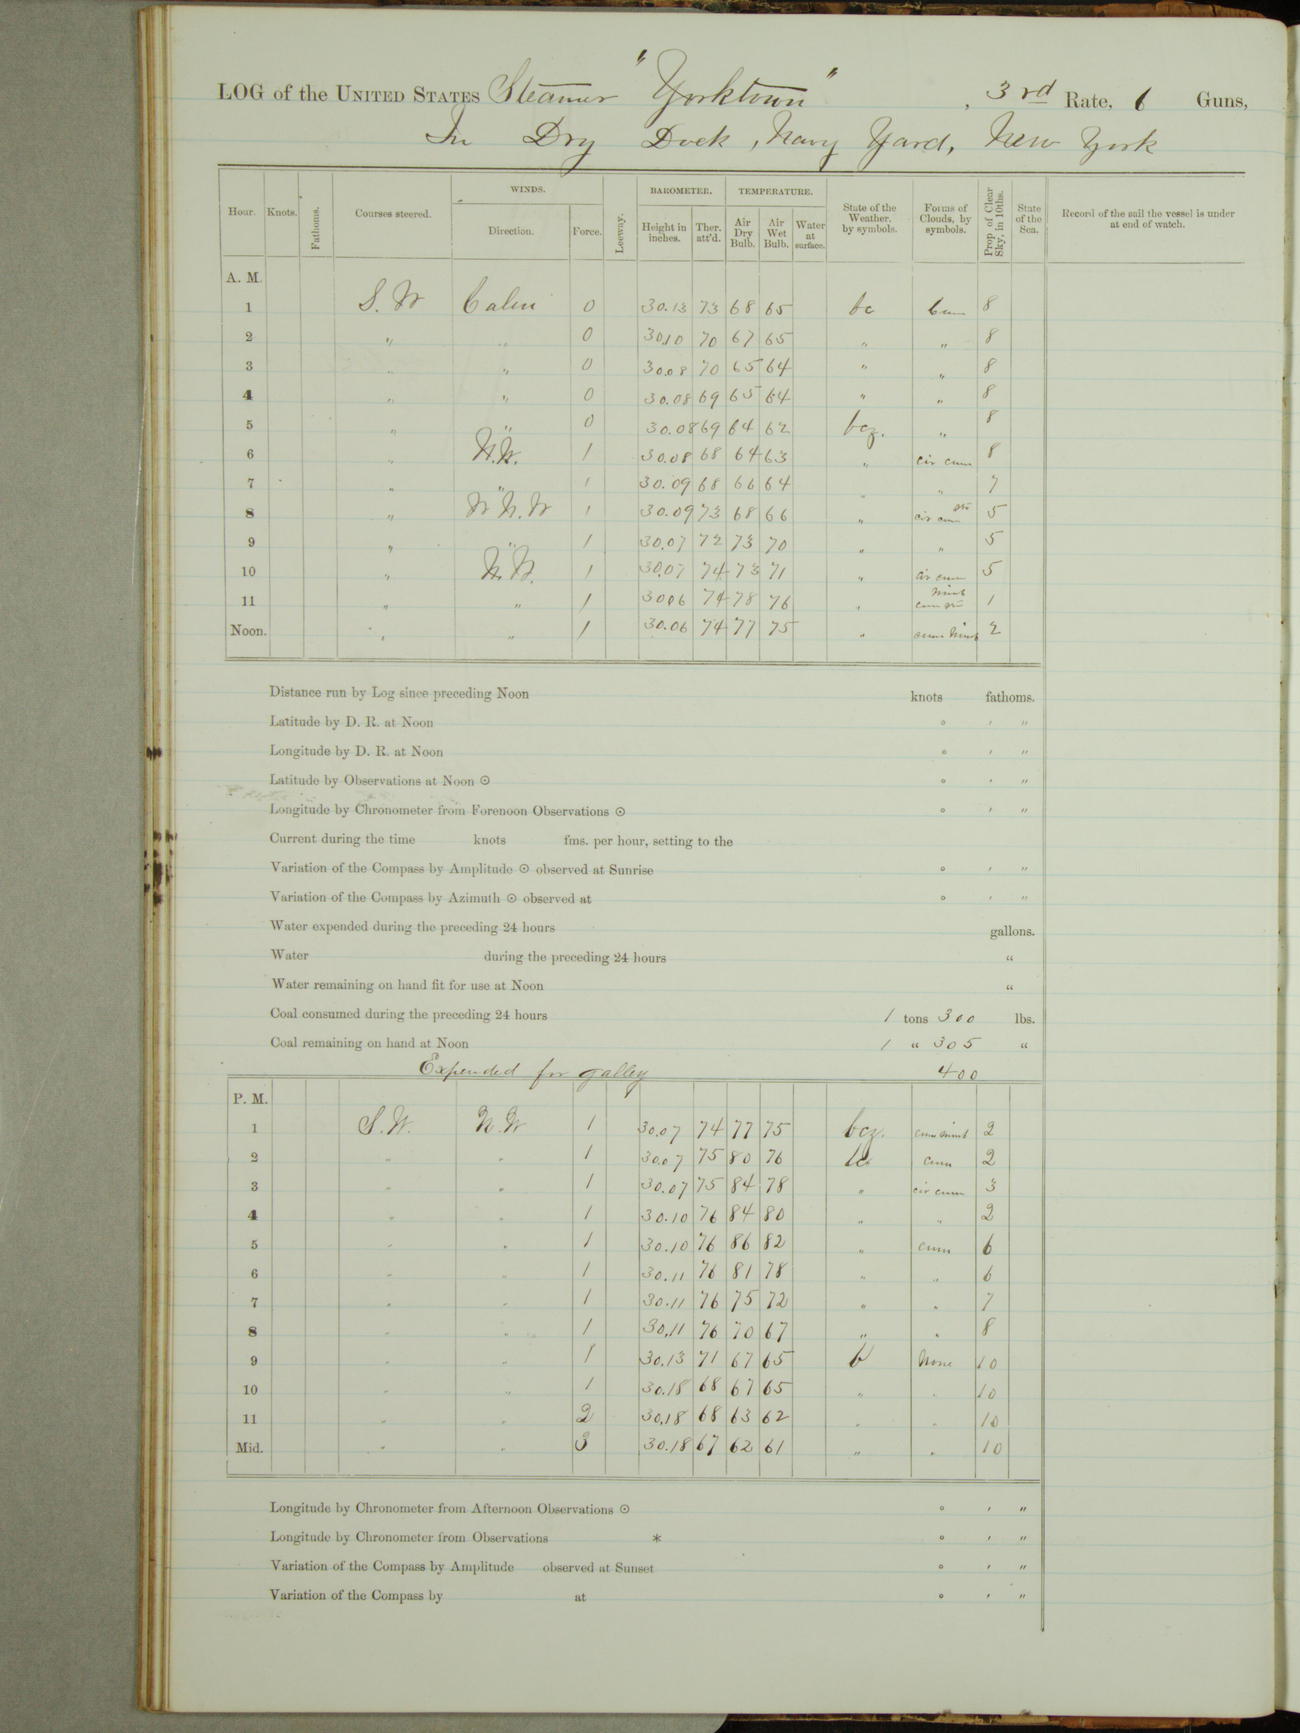 LOG of the UNITED STATES Steamer "Yorktown", 3rd Rate, 6 Guns,
In Dry Dock, Navy Yard, New York
Hour. Knots. Fathoms. Courses steered. WINDS. Direction. Force. Leeway. BAROMETER. Height in inches. Ther. att'd. TEMPERATURE. Air Dry Bulb. Air Wet Bulb. Water at surface. State of the Weather, by symbols. Forms of Clouds, by symbols. Prop of Clear Sky, in 10ths. State of the Sea. Record of the sail the vessel is under at end of watch.
A. M.
1 S. W Calm 0 30.13 73 68 65 bc Cum 8
2 " " 0 30.10 70 67 65 " " 8
3 " " 0 30.08 70 65 64 " " 8
4 " " 0 30.08 69 65 64 " " 8
5 " " 0 30.08 69 64 62 bcz. " 8
6 " N.W. 1 30.08 68 64 63 " cir cum 8
7 " " 1 30.09 68 66 64 " " 7
8 " W N. W 1 30.09 73 68 66 " cir cum str 5
9 " " 1 30.07 72 73 70 " " 5
10 " N.W. 1 30.07 74 73 71 " cir cum 5
11 " " 1 30.06 74 78 76 " cum str nimb 1
Noon. " " 1 30.06 74 77 75 " cum nimb 2
Distance run by Log since preceding Noon knots fathoms.
Latitude by D. R. at Noon ° ' "
Longitude by D. R. at Noon ° ' "
Latitude by Observations at Noon ⊙ ° ' "
Longitude by Chronometer from Forenoon Observations ⊙ ° ' "
Current during the time knots fms. per hour, setting to the
Variation of the Compass by Amplitude ⊙ observed at Sunrise ° ' "
Variation of the Compass by Azimuth ⊙ observed at ° ' "
Water expended during the preceding 24 hours gallons.
Water during the preceding 24 hours "
Water remaining on hand fit for use at Noon "
Coal consumed during the preceding 24 hours 1 tons 300 lbs.
Coal remaining on hand at Noon 1 " 305 "
Expended for galley 400
P. M.
1 S. W. N. W 1 30.07 74 77 75 bcz. cum nimb 2
2 " " 1 30.07 75 80 76 bc cum 2
3 " " 1 30.07 75 84 78 " cir cum 3
4 " " 1 30.10 76 84 80 " " 2
5 " " 1 30.10 76 86 82 " cum 6
6 " " 1 30.11 76 81 78 " " 6
7 " " 1 30.11 76 75 72 " " 7
8 " " 1 30.11 76 70 67 " " 8
9 " " 1 30.13 71 67 65 b None 10
10 " " 1 30.18 68 67 65 " " 10
11 " " 2 30.18 68 63 62 " " 10
Mid. " " 3 30.18 67 62 61 " " 10
Longitude by Chronometer from Afternoon Observations ⊙ ° ' "
Longitude by Chronometer from Observations * ° ' "
Variation of the Compass by Amplitude observed at Sunset ° ' "
Variation of the Compass by at ° ' "